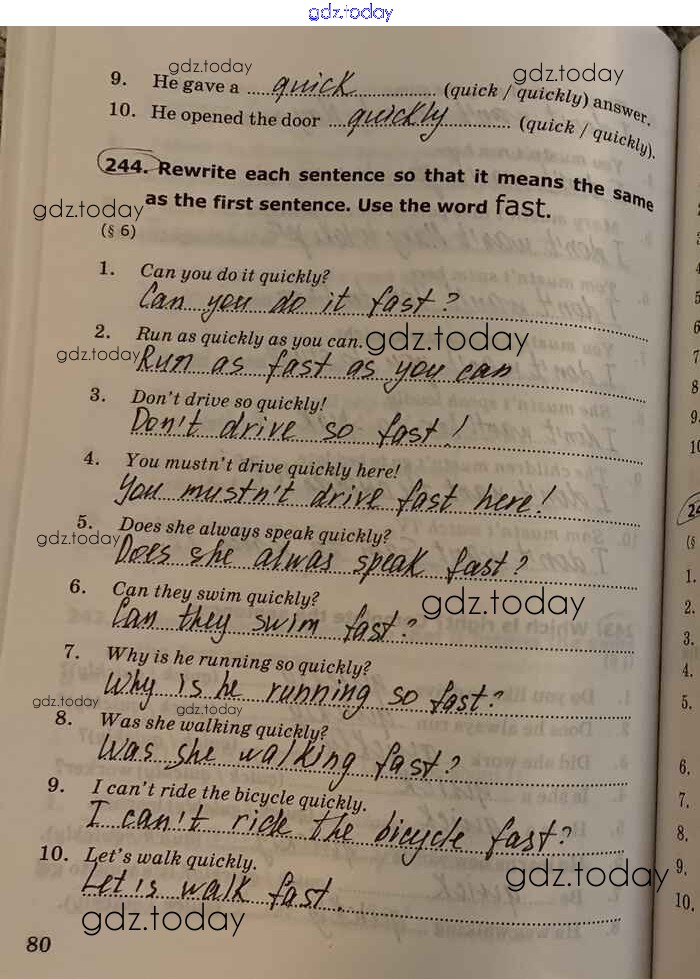 gdz.today
gdz.today
gdz.today
9. He gave a quick (quick / quickly) answer.
10. He opened the door quickly (quick / quickly).
244. Rewrite each sentence so that it means the same
as the first sentence. Use the word fast.
gdz.today
(§ 6)
1. Can you do it quickly?
Can you do it fast?
2. Run as quickly as you can.
gdz.today
gdz.today
Run as fast as you can
3. Don't drive so quickly!
Don't drive so fast!
4. You mustn't drive quickly here!
You mustn't drive fast here!
5. Does she always speak quickly?
gdz.today
Does she alwas speak fast?
6. Can they swim quickly?
gdz.today
Can they swim fast?
7. Why is he running so quickly?
Why is he running so fast?
gdz.today
gdz.today
8. Was she walking quickly?
Was she walking fast?
9. I can't ride the bicycle quickly.
I can't ride the bicycle fast?
10. Let's walk quickly.
gdz.today
Let is walk fast.
gdz.today
80
6
7
8
9.
10
24
(§
1.
2.
3.
4.
5.
6.
7.
8.
9.
10.